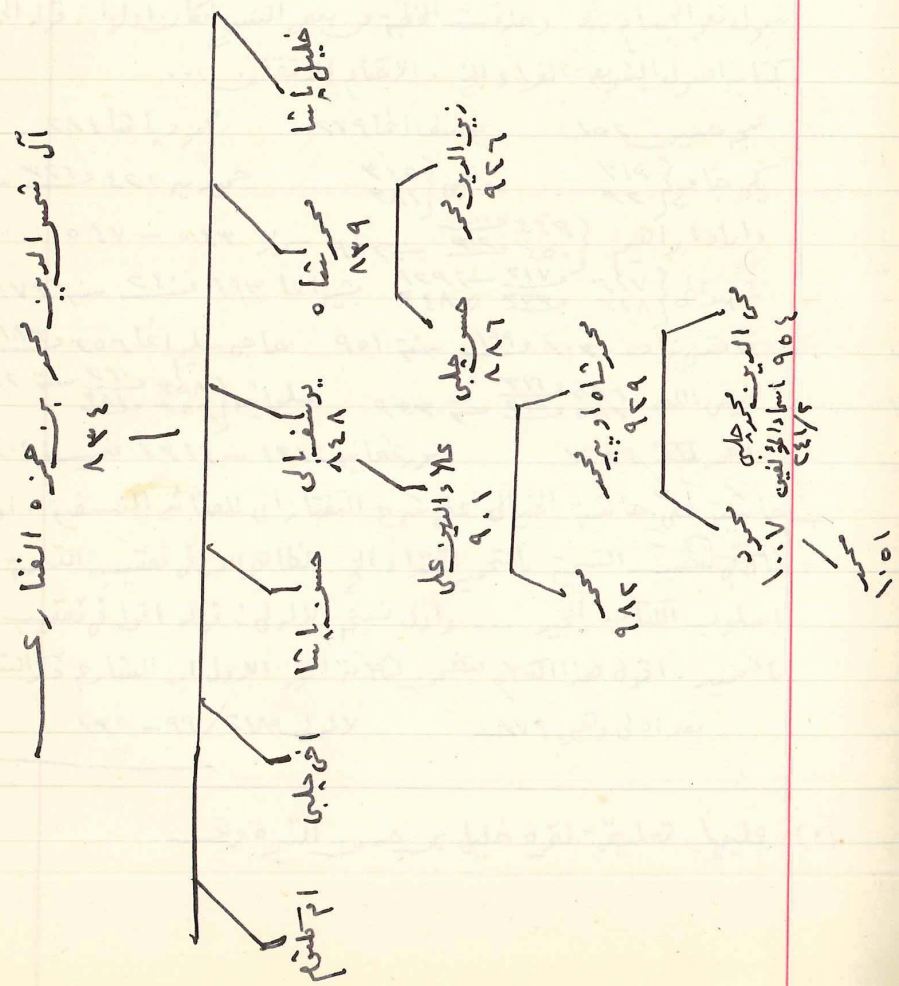 آل شمس الدين محمد بن حمزه الفناري
٨٣٤
خليل پاشا
محمد شاه
٨٣٩
يوسف بالى
٨٤٨
حسن پاشا
اخى چلبى
ام كلثوم
زين الدين محمد
٩٢٦
حسن چلبى
٨٨٦
علاء الدين على
٩٠١
محمد شاه او پير محمد
٩٢٩
محمد
٩٨٢
محى الدين محمد چلبى
٩٥٤ اسماء المؤلفين
٢٤١/٢
محمود
١٠٠٧
محمد
١٠٥١